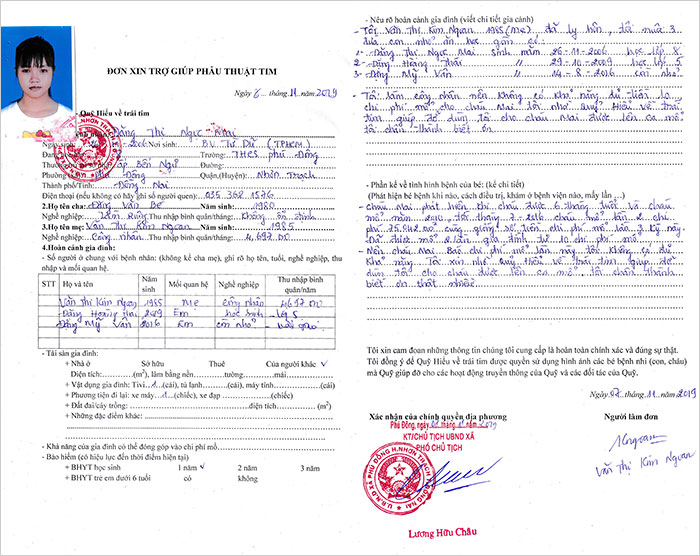 ĐƠN XIN TRỢ GIÚP PHẪU THUẬT TIM
Ngày 6 tháng 11 năm 2019
Quỹ Hiểu về trái tim
Đặng Thị Ngọc Mai
Ngày sinh: 2006 Nơi sinh: B.V Từ Dũ (TPHCM)
Trường: THCS Phú Đông
ấp Bến Ngự Đường:
Phường Quận,(Huyện): Nhơn Trạch
Thành phố/Tỉnh: Đồng Nai
Điện thoại (nếu không có hãy ghi số người quen): 035 368 1576
2.Họ tên cha: Đặng Văn Bé Năm sinh: 1980
Nghề nghiệp: Làm Rừng Thu nhập bình quân/tháng: Không ổn định
3.Họ tên mẹ: Văn Thị Kim Ngoan Năm sinh: 1985
Nghề nghiệp: Công nhân Thu nhập bình quân/tháng: 4,697.00
4.Hoàn cảnh gia đình:
- Số người ở chung với bệnh nhân: (không kể cha mẹ), ghi rõ họ tên, tuổi, nghề nghiệp, thu nhập và mối quan hệ.
STT Họ và tên Năm sinh Mối quan hệ Nghề nghiệp Thu nhập bình quân/năm
Văn Thị Kim Ngoan 1985 Mẹ công nhân 4697.00
Đặng Hoàng 2009 Em học sinh lớp 5
Đặng Mỹ Vân 2016 Em còn nhỏ
- Tài sản gia đình:
+ Nhà ở Sở hữu Thuê Của người khác ✓
Diện tích:(m2), làm bằng nền tường mái
+ Vật dụng gia đình: Tivi 1 (cái), tủ lạnh (cái), máy tính (cái)
+ Phương tiện đi lại: xe máy 1 (chiếc), xe đạp (chiếc)
+ Đất đai/cây trồng: diện tích (m2)
+ Những đặc điểm khác:
- Khả năng của gia đình có thể đóng góp vào chi phí mổ
- Bảo hiểm (có hiệu lực đến thời điểm hiện tại)
+ BHYT học sinh 1 năm ✓ 2 năm 3 năm
+ BHYT trẻ em dưới 6 tuổi có không
- Nêu rõ hoàn cảnh gia đình (viết chi tiết gia cảnh)
- Tôi Văn Thị Kim Ngoan 1985 (mẹ) đã ly hôn, tôi nuôi 3
đứa con nhỏ ăn học gồm có:
1- Đặng Thị Ngọc Mai sinh năm 26-11-2006 học lớp 8
2- Đặng Hoàng " 29-10-2009 học lớp 5
3- Đặng Mỹ Vân " 14-8-2016 còn nhỏ
- Tôi làm công nhân nên không có khả năng để lo
chi phí mổ cho cháu Mai tôi nhờ Quỹ Hiểu về trái
tim giúp đỡ dùm tôi cho cháu Mai được lên ca mổ
tôi chân thành biết ơn
- Phần kể về tình hình bệnh của bé: (kể chi tiết)
(Phát hiện bé bệnh khi nào, cách điều trị, khám ở bệnh viện nào, mấy lần ...)
- Cháu Mai phát hiện thì cháu được 6 tháng tuổi và cháu
mổ năm 2010 tới tháng 7-2016 cháu mổ lần 2 chi
phí 75.642.00 cùng gia đình
Đã được mổ 2 lần gia đình tự lo chi phí mổ
- Nên cháu Mai chi phí mổ lần này tôi không có đủ
khả năng Tôi xin nhờ Quỹ hiểu về trái tim giúp đỡ
dùm tôi cho cháu được lên ca mổ tôi chân thành
biết ơn thật nhiều
Tôi xin cam đoan những thông tin chúng tôi cung cấp là hoàn toàn chính xác và đúng sự thật.
Tôi đồng ý để Quỹ Hiểu về trái tim được quyền sử dụng hình ảnh các bé bệnh nhi (con, cháu)
mà Quỹ giúp đỡ cho các hoạt động truyền thông của Quỹ và các đối tác của Quỹ.
Ngày 07 tháng 11 năm 2019
Xác nhận của chính quyền địa phương
Người làm đơn
Phú Đông, ngày tháng năm 2019
KT/CHỦ TỊCH UBND XÃ
PHÓ CHỦ TỊCH
Ngoan
Văn Thị Kim Ngoan
U.B.N.D XÃ PHÚ ĐÔNG H.NHƠN TRẠCH T.ĐỒNG NAI
Lương Hữu Châu